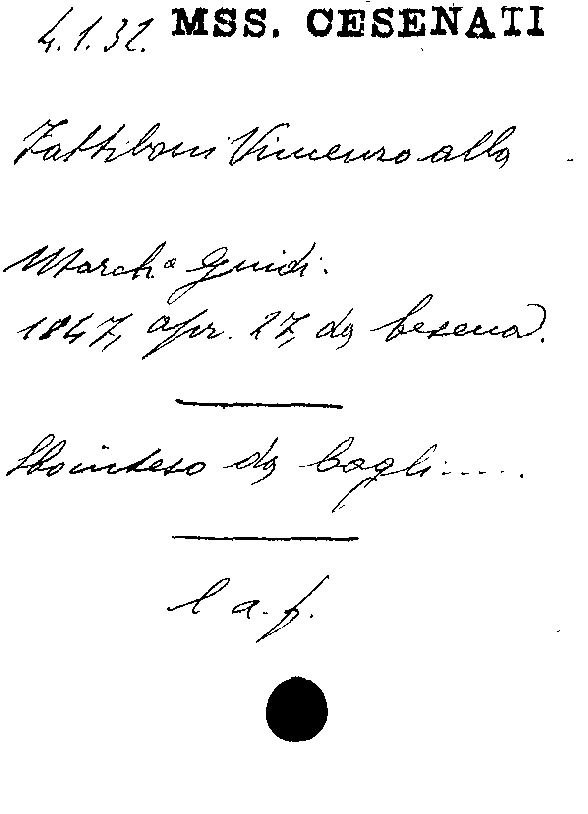 4.1.32. MSS. CESENATI
Fattiboni Vincenzo alla
March.ª Guidi.
1847, apr. 27, da Cesena.
Ho inteso da Cagli.....
l a. f.